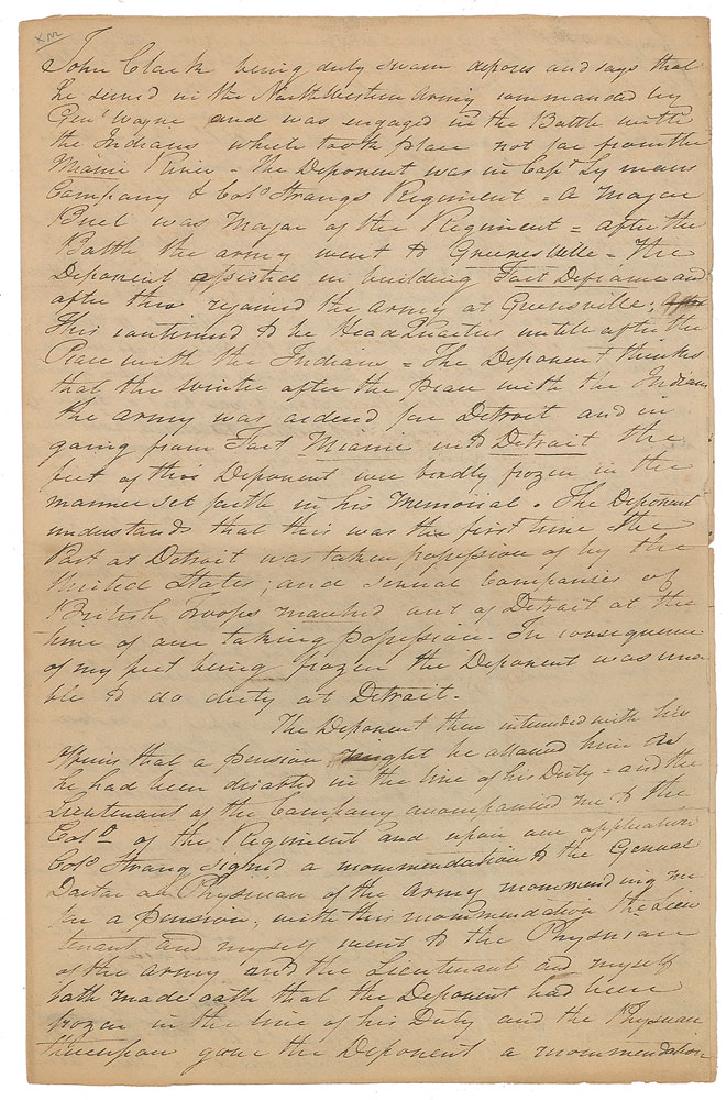 John Clark being duly sworn deposes and says that
he served in the North Western Army commanded by
Genl Wayne and was engaged in the Battle with
the Indians which took place not far from the
Miami River - The Deponent was in Capt Lymans
Company & Colo Strangs Regiment - a Major
Buel was Major of the Regiment = after the
Battle the army went to Greenesville - the
Deponent assisted in building Fort Defiance and
after this rejoined the army at Greensville;
this continued to be Head Quarters untill after the
Peace with the Indians = The Deponent thinks
that the winter after the peace with the Indians
the army was ordered for Detroit and in
going from Fort Miami into Detroit the
feet of this Deponent were badly frozen in the
manner set forth in his Memorial. The Deponent
understands that this was the first time the
Post at Detroit was taken possession of by the
United States; and several Companies of
British troops marched out of Detroit at the
time of our taking possession - In consequence
of my feet being frozen the Deponent was una
ble to do duty at Detroit -
The Deponent then intended with his
that a pension might be allowed him as
he had been disabled in the line of his Duty = and the
Lieutenant of the Company accompanied me to the
Colo of the Regiment and upon our application
Colo Strang signed a recommendation to the General
Doctor or Physician of the Army recommending me
for a pension, with this recommendation the Lieu
tenant and myself went to the Physician
of the army and the Lieutenant and myself
both made oath that the Deponent had been
frozen in the line of his Duty and the Physician
thereupon gave the Deponent a recommendation